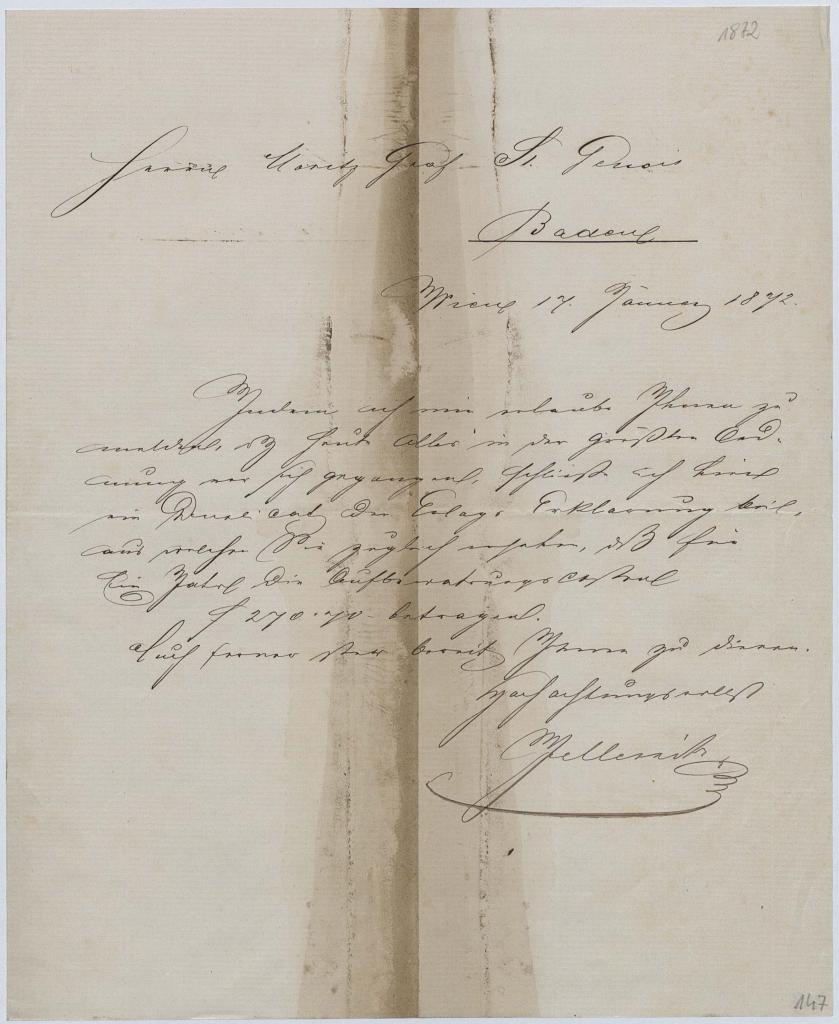 1872
Herrn Moritz Graf St. Genois
Baden
Wien 17. Jänner 1872.
Indem ich mir erlaube Ihnen zu
melden, daß heute alles in der größten Ord-
nung vor sich gegangen, schließe ich hier
ein Duplicat der Erlags Erklärung bei,
aus welcher Sie zugleich ersehen, daß für
Ein Jahr die Aufbewahrungskosten
f 270.70 betragen.
Auch ferner stets bereit Ihnen zu dienen.
Hochachtungsvollst
147